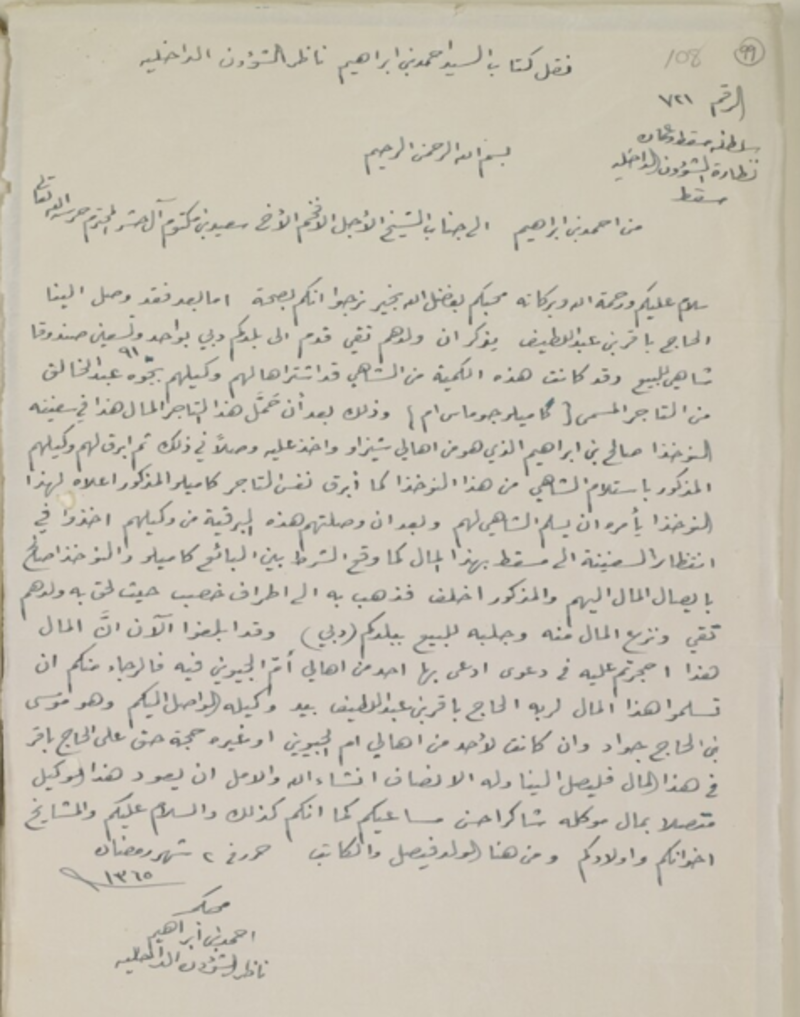 99
108
نقل كتاب السيد احمد بن ابراهيم ناظر الشؤون الداخلية
الرقم ٧٢١
سلطنة مسقط وعمان
نظارة الشؤون الداخلية
مسقط
بسم الله الرحمن الرحيم
من احمد بن ابراهيم الى جناب الشيخ الأجل الافخم الأخ سعيد بن مكتوم آل حشر المحترم حرسه الله تعالى
سلام عليكم ورحمة الله وبركاته محبكم بفضل الله بخير نرجوا انكم بصحة اما بعد فقد وصل الينا
الحاج باقر بن عبد اللطيف يذكر ان ولدهم تقي قدم الى بلدكم دبي بواحد وتسعين صندوقا
٩١
شاهي للبيع وقد كانت هذه الكمية من الشاهي قد اشتراها لهم وكيلهم عبد الخالق
من التاجر المسمى (كاميلو جوماس ام) وذلك بعد أن حَمَّل هذا التاجر المال هذا في سفينة
النوخذا صالح بن ابراهيم الذي هو من اهالي شيراز واخذ عليه وصلاً في ذلك ثم ابرق لهم وكيلهم
المذكور باستلام الشاهي من هذا النوخذا كما أبرق نفس التاجر كاميلو المذكور اعلاه لهذا
النوخذا يأمره ان يسلم الشاهي لهم وبعد ان وصلتهم هذه البرقية من وكيلهم اخذوا في
انتظار السفينة الى مسقط بهذا المال كما وقع الشرط بين البائع كاميلو والنوخذا صالح
بايصال المال اليهم والمذكور اخلف فذهب به الى اطراف خصب حيث لحق به ولدهم
تقي ونزع المال منه وجلبه للبيع ببلدكم (دبي) وقد ابلغوا الآن انَّ المال
هذا احجرتم عليه في دعوى ادعى بها احد من اهالي أم الجيوين فيه فالرجاء منكم ان
تسلموا هذا المال لربه الحاج باقر بن عبد اللطيف بيد وكيله الواصل اليكم وهو موسى
بن الحاج جواد وان كانت لأحد من اهالي ام الجيوين او غيره حجة حق على الحاج باقر
في هذا المال فليصل الينا وله الانصاف انشاء الله والامل ان يعود هذا الوكيل
متصلا بمال موكله شاكرا حسن مساعيكم كما انكم كذلك والسلام عليكم والمشايخ
اخوانكم واولادكم ومن هنا الولد فيصل والكاتب حرر في ٢ شهر رمضان
١٣٦٥
محبكم
احمد بن ابراهيم
ناظر الشؤون الداخلية